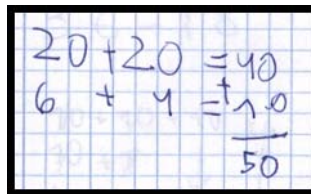 20+20=40
6+4=+10
50